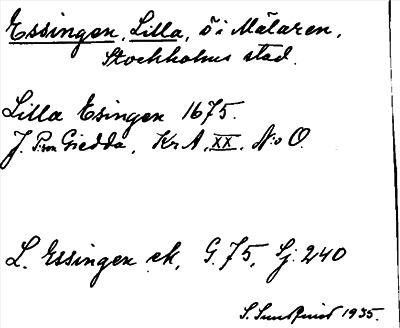 Essingen, Lilla, ö i Mälaren,
Stockholms stad.
Lilla Esingen 1675.
J. P:son Giedda, Kr A, XX, N:o O.
L. Essingen ek, G. 75, Sj. 240
S. Sundquist 1935.